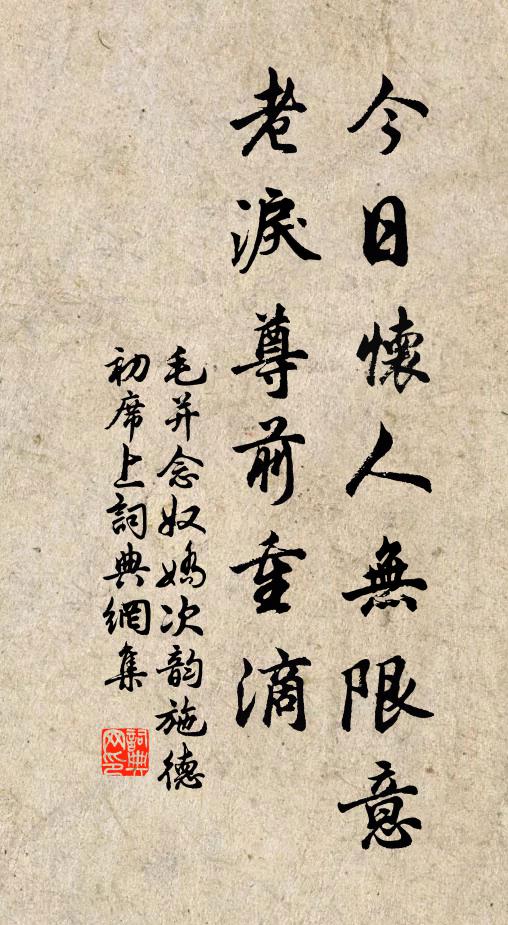 今日懷人無限意
老淚尊前重滴
毛并念奴嬌次韵施德
初席上詞典網集
詞典
网印